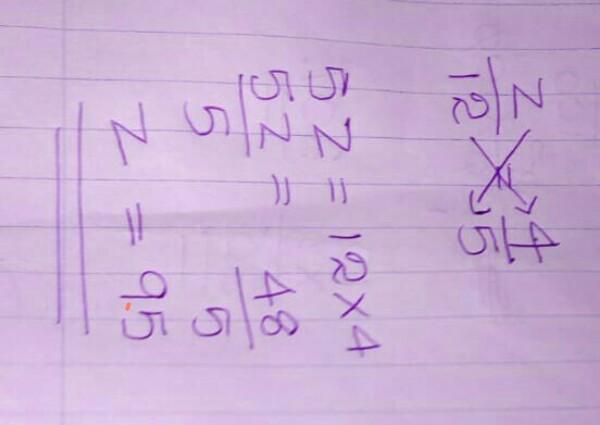 Z/12 = 4/5
5Z = 12×4
5Z/5 = 48/5
Z = 9.5